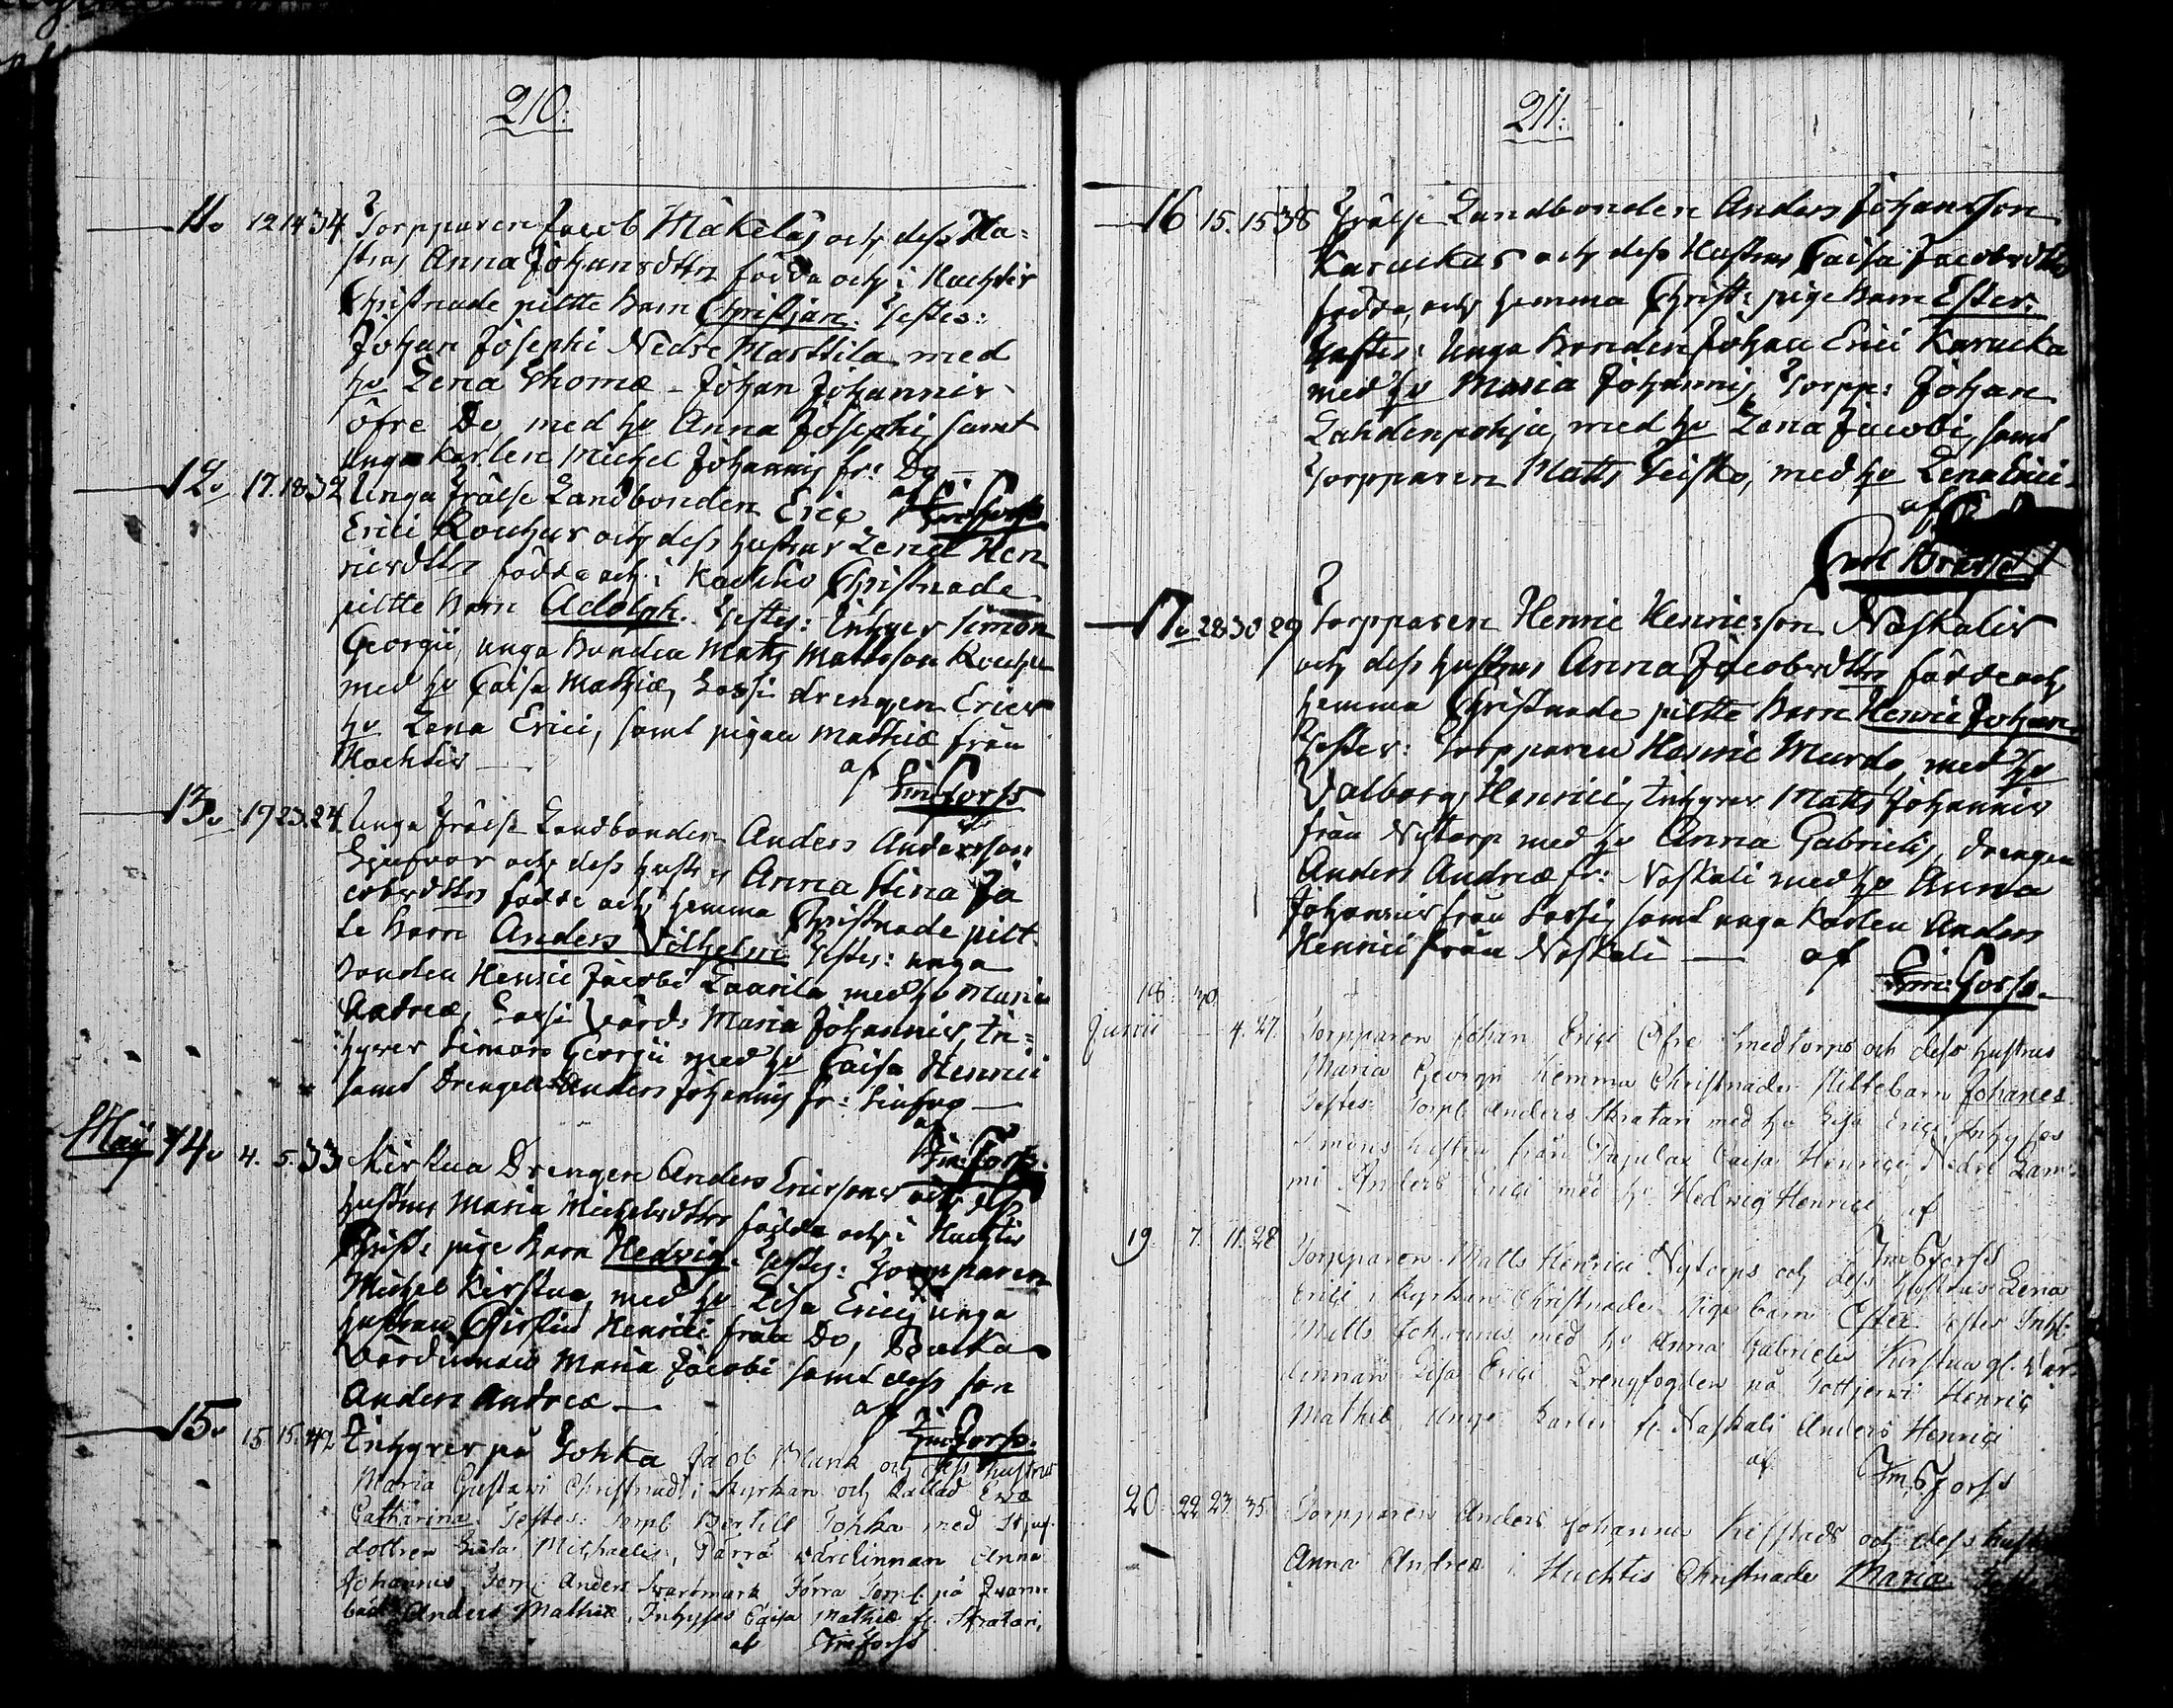 210.
11. 12 14 34 Torpparen Jacob Mäkeläs och dess Hu=
strus Anna Johansdttrs födda och i Huchtis
Christnade piltte barn Christian. Testes:
Johan Josephi Nedre Marttila med
hu Lena Thomæ - Johan Johannis
öfre Do med hu Anna Josephi samt
unga Karlen Michel Johannis fr: Do —
12. 17. 18 32 Unga Frälse Landbonden Eric af Im: Forss
Erici Rouhus och dess hustrus Lena Hen
ricsdttrs födda och i Huchtis Christnade
piltte barn Adolph. Testes: Inhyses Simon
Georgii, unga bonden Matts Mattsson Rouhu
med hu Caisa Mathiæ, Sassi drengen Erics
hu Lena Erici, samt pigan Mathiæ från
Huchtis —
af Im: Forss
13. 19 23. 24 Unga Frälse Landbonden Anders Andersson
och dess hustrus Anna Stina Ja
cobsdttrs födde och hemma Christnade pilt
te barn Anders Vilhelm Testes: unga
bonden Henric Jacobi Laurila med hu Maria
Andreæ, Sassi Värd: Maria Johannis, In=
hyses Simon Georgii med hu Caisa Henrici
samt Drengen Anders Johannis fr: —
af
Maij 14. 4. 5. 33 Kirstua Drengen Anders Ericssons och dess Im: Forss.
hustrus Maria Michelsdttrs födda och i Huchtis
Christ: pige barn Hedvig. Testes: Torpparen
Michel Kirstua, med hu Lisa Erici, unga
hustrun Christin Henrici från Do,
Värdinnan Maria Jacobi samt dess son
Anders Andreæ —
af Im: Forss.
15. 15 15. 42 Inhyses på Tohka Jacob Blank och dess hustrus
Maria Gustavi Christnadt i Kyrkan och kallad Eva
Catharina. Testes: Torp: Bertill Tohka med Stjuf-
dottren Greta Michaelis, Pärrä värdinnan Anna
Johannis, Torp: Anders Svartmark Torra Torp: på
Anders Mathiæ, Inhyses Caisa Mathiæ fr. Skratari,
af Im: Forss
211.
16 15. 15 38 Frälse Landbonden Anders Johansson
Karuckas och dess Hustrus Caisa Jacobsdttrs
födda, och hemma Christ: pige barn Ester.
Testes: Unga bonden Johan Erici Karucka
med hu Maria Johannis, Torpp: Johan
Lahdenpohja, med hu Lena Jacobi, samt
Torpparen Matts Leisko, med hu Lena Erici.
af
Carl
17. 28 30 29 Torpparen Henric Henricsson Naskalis
och dess hustrus Anna Jacobsdttrs födde och
hemma Christnade piltte barn Henric Johan.
Testes: Torpparen Henric Murdo, med hu
Valborg Henrici, Inhyses Matts Johannis
från Nytorp med hu Anna Gabrielis, drengen
Anders Andreæ fr: Naskali med hu Anna
Johannis från Sassi, samt unga Karlen Anders
Henrici från Naskali — af
Im: Forss.
18. 30
Junii 4. 27. Torpparen Johan Erici Öfre Smedtorps och dess hustrus
Maria Georgii hemma Christnade Piltebarn Johanes.
Testes: Torp: Anders Skratari med hu Lisa Erici, Inhyses
Simons hustru från Papulax Caisa Henrici, Nedre Lam
mi Anders Erici med hu Hedwig Henrici af
Im: Forss
19. 7. 11. 28 Torpparen Matts Henrici Nytorps och dess Hustrus Lena
Erici i Kyrkan Christnade Pige barn Ester Testes Inhy:
Matts Johannis med hu Anna Gabrielis Kirstua gl. Vär
dinnan Lisa Erici Drengfogden på Henric
Mathiæ Unge Karlen fr. Naskali Anders Henrici
af Im: Forss
20. 22 23. 35. Torpparen Anders Johannis och dess hust
Anna Andreæ i Huchtis Christnade Maria